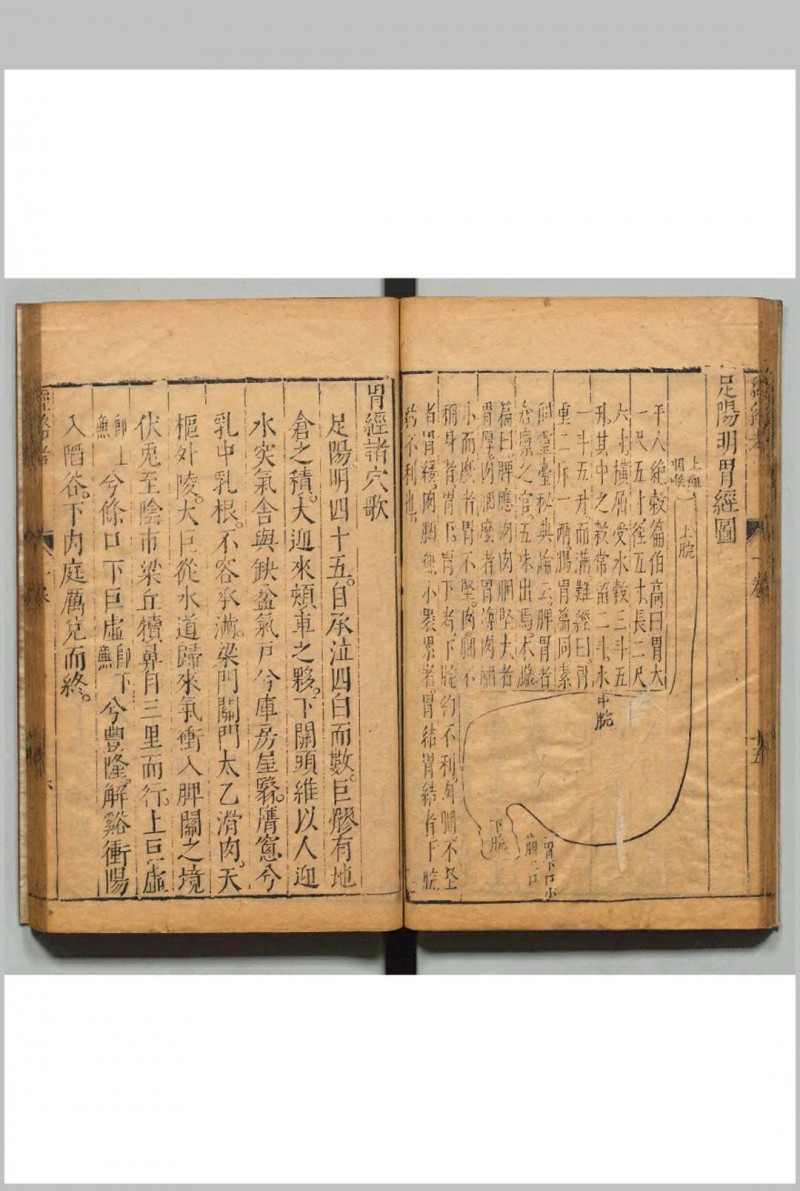 足陽明胃經圖
上腕
中腕
下腕
胃下口小
平人絶穀篇伯高曰胃大
一尺五寸徑五寸長二尺
六寸橫屈受水穀三斗五
升其中之穀常留二斗水
一斗五升而滿難經曰胃
重二斤一兩腸胃篇同素
靈臺秘典論云脾胃者
倉廩之官五味出焉本臟
篇曰脾應肉肉䐃堅大者
胃厚肉䐃麼者胃薄肉䐃
小而麼者胃不堅肉䐃不
稱身者胃下胃下者下腕約不利肉䐃不堅
者胃緩肉䐃無小裹累者胃結胃結者下腕
約不利也
胃經諸穴歌
足陽明四十五。自承泣四白而數。巨髎有地
倉之積。大迎來頰車之夥。下關頭維以人迎
水突氣舍與缺盆氣戸兮庫房屋翳。膺窻兮
乳中乳根。不容承滿。梁門關門太乙滑肉。天
樞外陵。大巨從水道歸來氣衝入脾關之境
伏兎至陰市梁丘犢鼻自三里而行。上巨虛
兮條口下巨虛下兮豐隆。解谿衝陽
入陷谷。下內庭厲兌而終。